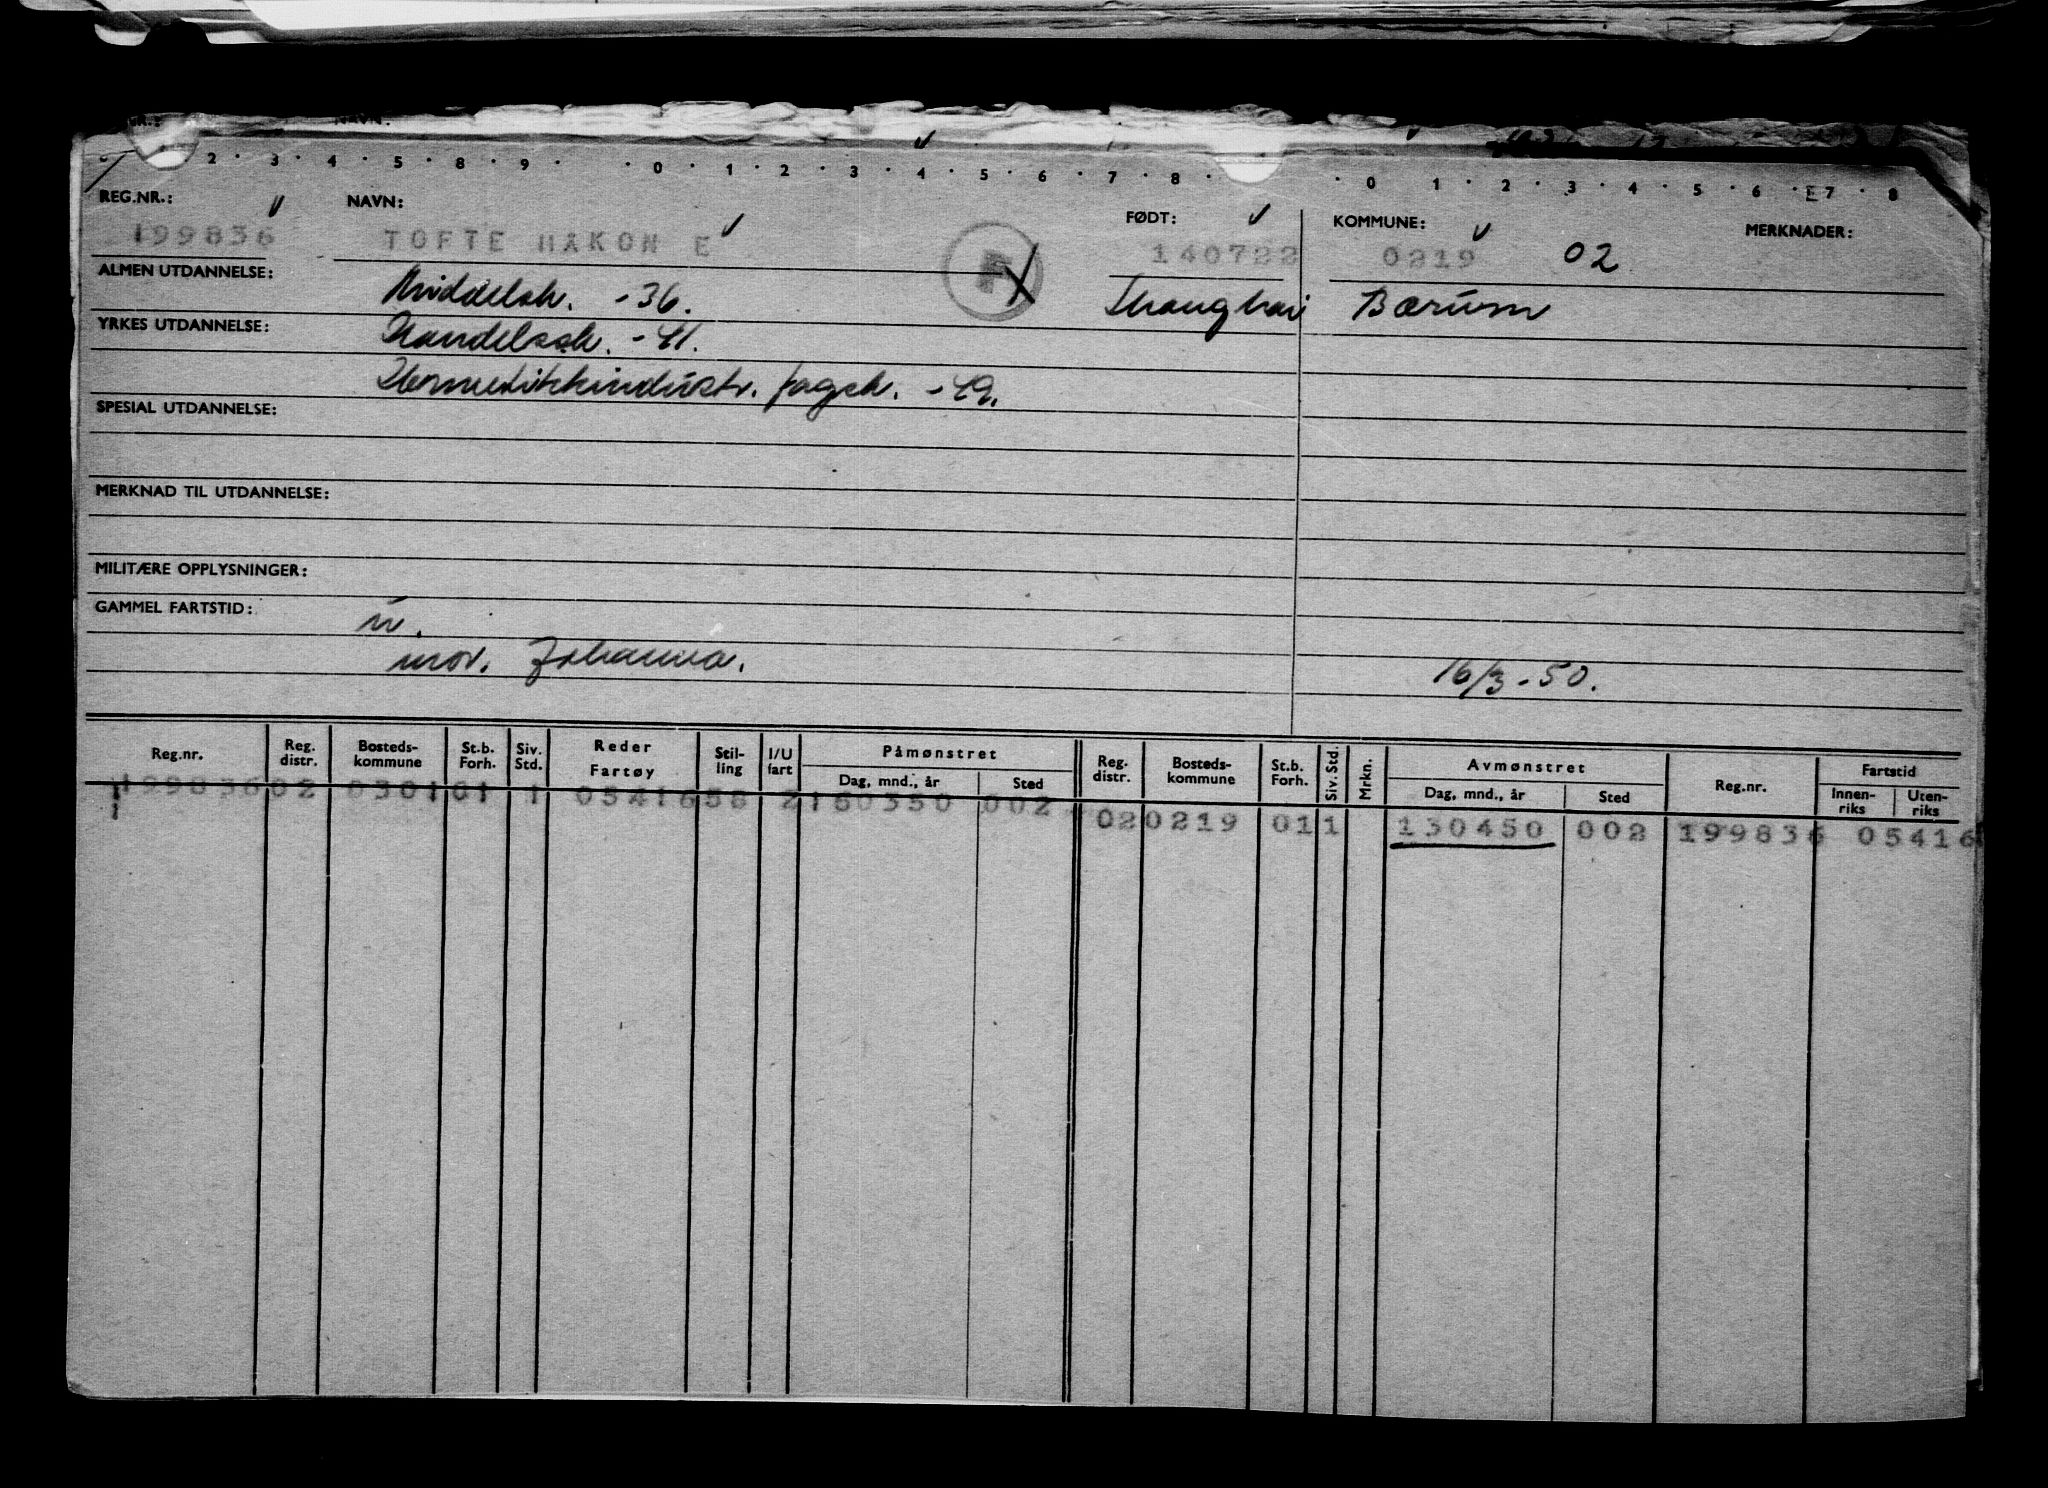 NR.: NAVN:
2 · 3 · 4 · 5 · 8 · 9 · · 0 · 1 · 2 · 3 · 4 · 5 · 6 · 7 · 8 · · 0 · 1 · 2 · 3 · 4 · 5 · 6 · 7 · 8
REG.NR.: NAVN: FØDT: KOMMUNE: MERKNADER:
199836 TOFTE HAKON E F 140722 0219 02
ALMEN UTDANNELSE: Middelsk. -36. Shanghai Bærum
YRKES UTDANNELSE: Handelssk. -41.
Hermetikkindustr. fagsk. -49.
SPESIAL UTDANNELSE:
MERKNAD TIL UTDANNELSE:
MILITÆRE OPPLYSNINGER:
GAMMEL FARTSTID:
mor. Johanna. 16/3-50.
Reg.nr. Reg. distr. Bosteds-kommune St.b. Forh. Siv. Std. Reder Fartøy Stil-ling I/U fart Påmønstret Dag, mnd., år Sted Reg. distr. Bosteds-kommune St.b. Forh. Siv. Std. Mrkn. Avmønstret Dag, mnd., år Sted Reg.nr. Fartstid Innen-riks Uten-riks
199836 02 0301 01 1 05416 58 2 160350 002
02 0219 01 1 130450 002 199836 05416